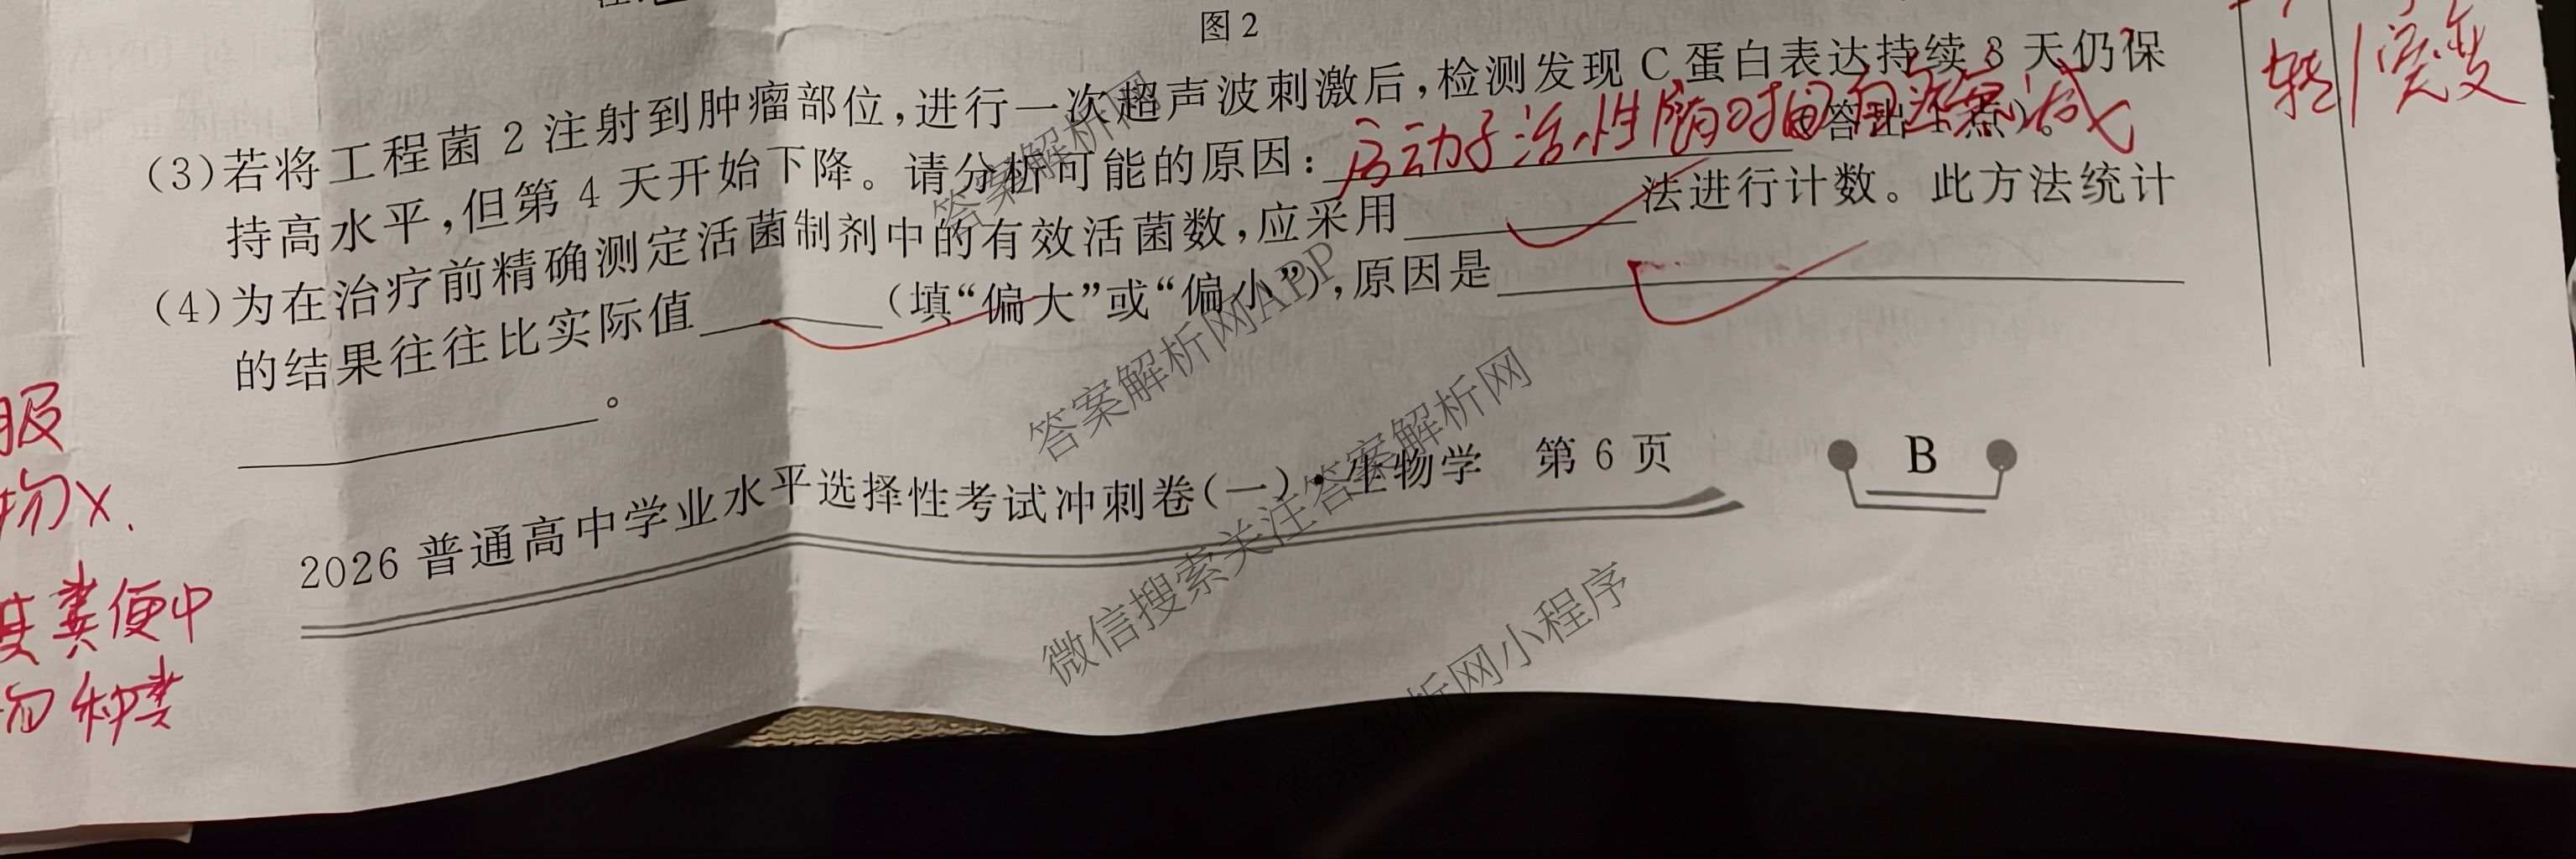 图2
(3)若将工程菌2注射到肿瘤部位,进行一次超声波刺激后,检测发现C蛋白表达持续3天仍保
持高水平,但第4天开始下降。请分析可能的原因:启动子活性随时间自然衰减(答出1点)。
(4)为在治疗前精确测定活菌制剂中的有效活菌数,应采用法进行计数。此方法统计
的结果往往比实际值(填“偏大”或“偏小”),原因是
。
2026普通高中学业水平选择性考试冲刺卷(一)·生物学 第6页
B
转
突变
服
物X.
粪便中
种类
答案解析网
答案解析网APP
微信搜索关注答案解析网
析网小程序